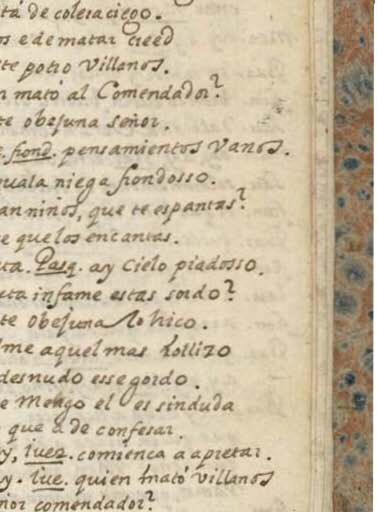 tá de colera ciego.
os e de matar creed
te potro Villanos.
n mató al Comendador?
te obejuna señor.
e. frond. pensamientos Vanos.
uala niega frondosso.
an niños, que te espantas?
e que los encantas.
ta. Pasq. ay Cielo piadosso.
uta infame estas sordo?
te obejuna lo hico.
me aquel mas Rollizo
desnudo esse gordo.
e Mengo el es sin duda
que a de confesar.
y, iuez. comienca a apretar.
y. iue. quien mató Villanos
ñor comendador?